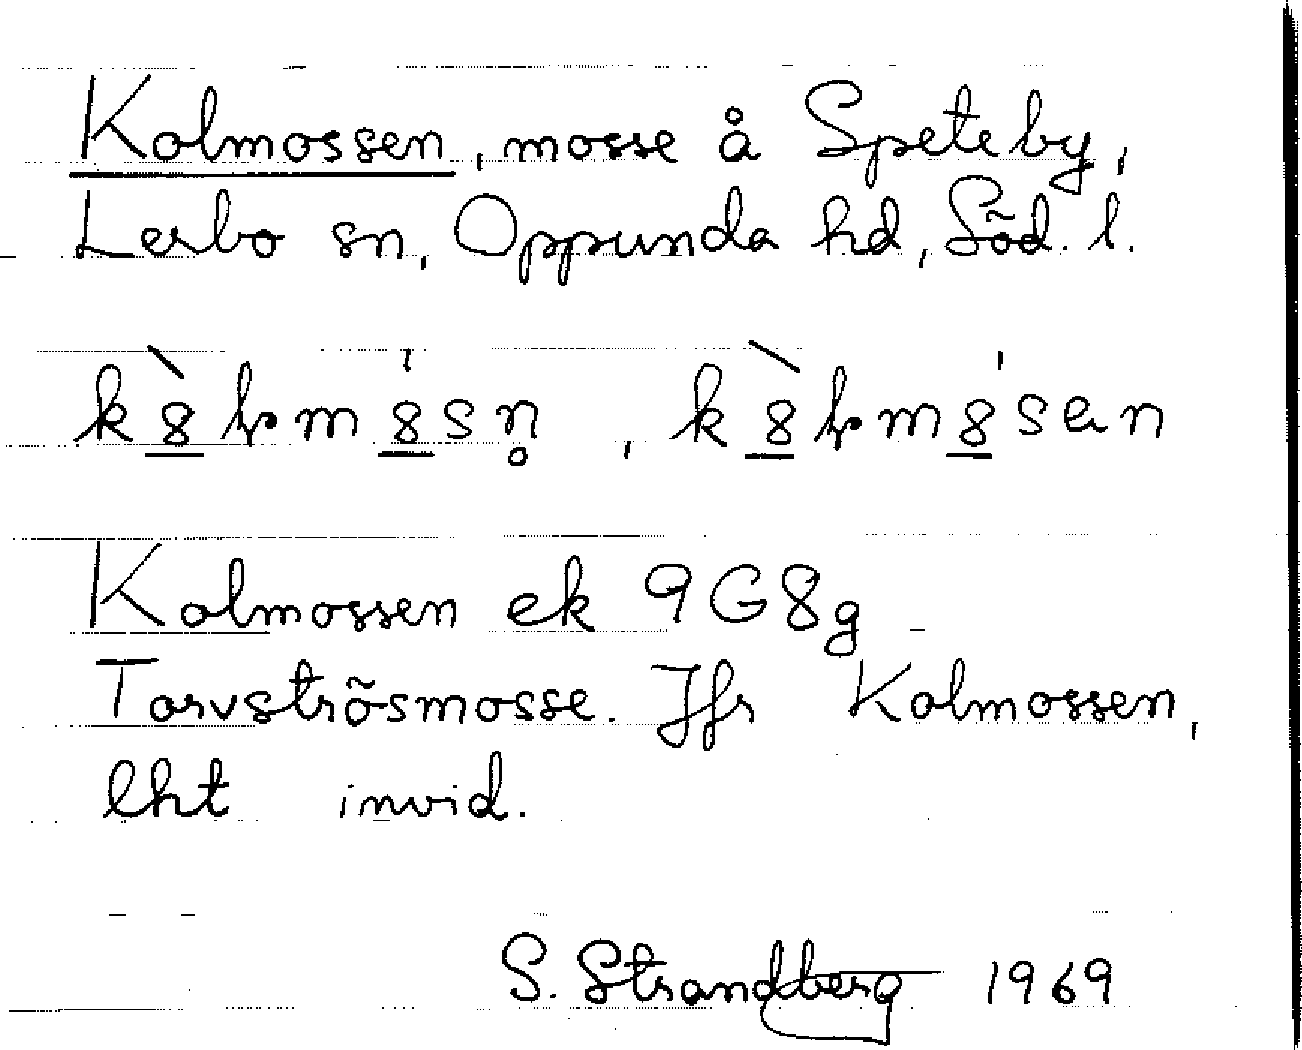 Kolmossen, mosse å Speteby,
Lerbo sn, Oppunda hd, Söd. l.
Kolmossen ek 9G8g
Torvströsmosse. Jfr Kolmossen,
lht invid.
S. Strandberg 1969